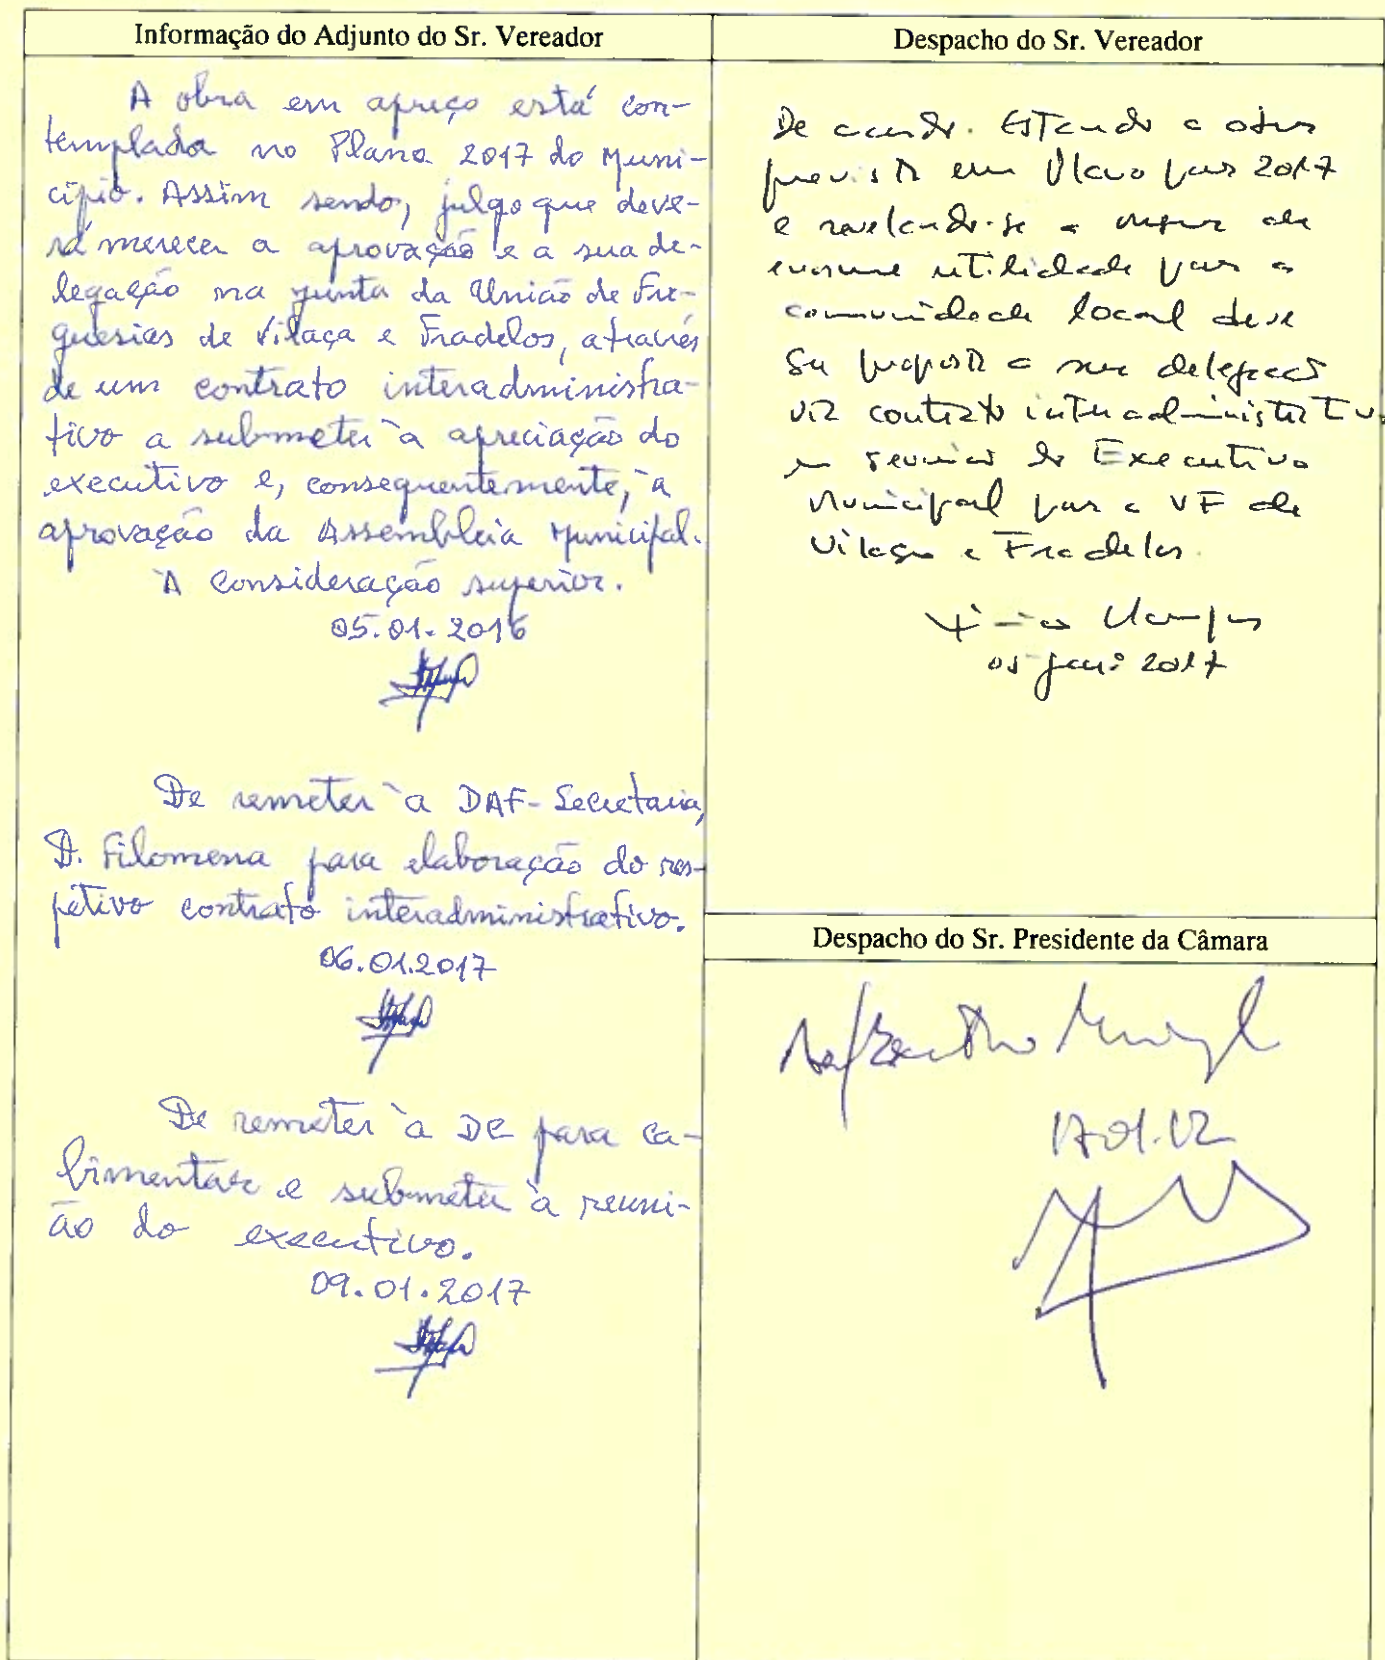 Informação do Adjunto do Sr. Vereador
A obra em apreço está con-
templada no Plano 2017 do Muni-
cípio. Assim sendo, julgo que deve-
rá merecer a aprovação e a sua de-
legação na junta da União de Fre-
guesias de Vilaça e Fradelos, através
de um contrato interadministra-
tivo a submeter à apreciação do
executivo e, consequentemente, à
aprovação da Assembleia Municipal.
À Consideração superior.
05.01.2016
De remeter à DAF-Secretaria,
D. Filomena para elaboração do res-
petivo contrato interadministrativo.
06.01.2017
De remeter à DC para ca-
bimentar e submeter à reuni-
ão do executivo.
09.01.2017
Despacho do Sr. Vereador
De acordo. Estando a obra
prevista em Plano para 2017
e revelando-se a mesma de
enorme utilidade para a
comunidade local deve
ser proposta a sua delegação
via contrato interadministrativo
em reunião do Executivo
Municipal para a UF de
Vilaça e Fradelos.
05 jan: 2017
Despacho do Sr. Presidente da Câmara
17.01.12